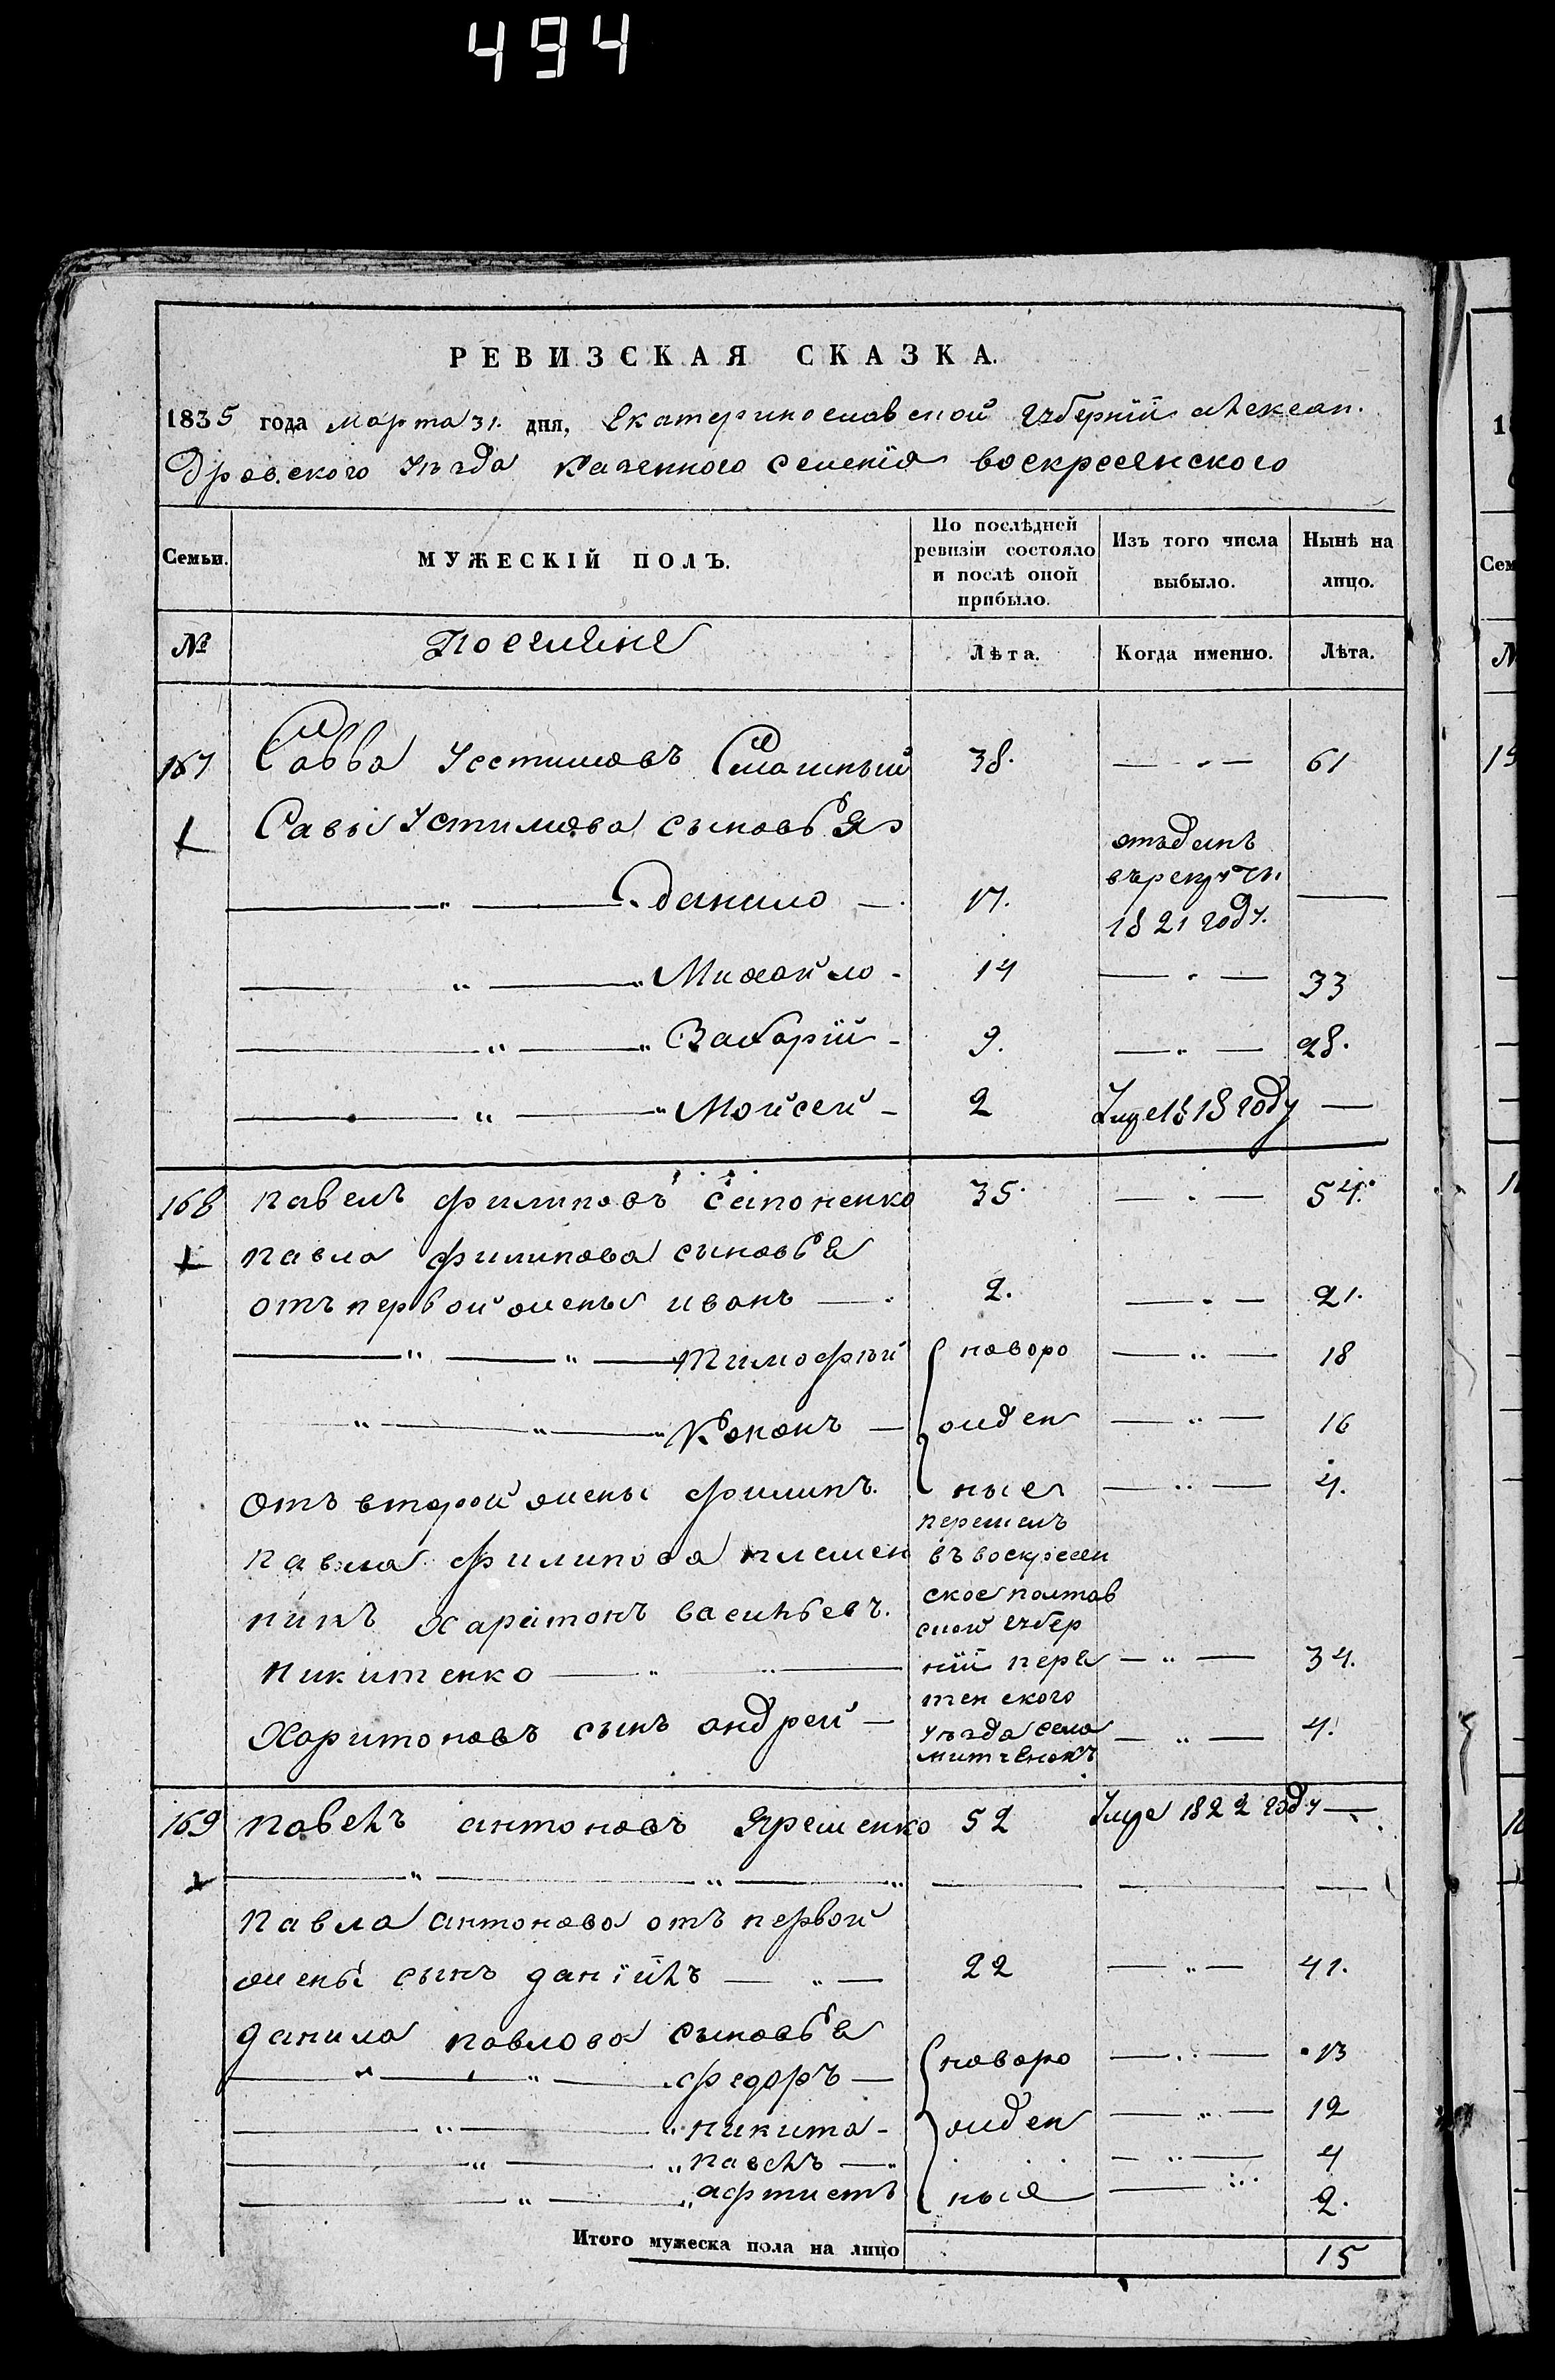 494
РЕВИЗСКАЯ СКАЗКА.
1835 года Марта 31. дня, Екатеринославской Губерніи Алексан.
дровского уѣзда казенного селенія воскресенского
Семьи. МУЖЕСКІЙ ПОЛЪ. По послѣдней ревизіи состояло и послѣ оной прибыло. Изъ того числа выбыло. Нынѣ на лицо.
№ Поселяне Лѣта. Когда именно. Лѣта.
167 Савва Устимовъ 38. — „ — 61
Савы Устимова сыновья
— „ — Данило — 17. отъданъ въ рекруты 1821 году. —
— „ — „ Михайло - 14 — „ — 33
— „ — „ Захарій - 9. — „ — 28.
— „ — „ Мойсей - 2 Умре 1818 году —
168 павелъ филиповъ сапоненко 35. — „ — 54.
павла филипова сыновья
отъ первой жены иванъ — 2. — „ — 21.
— „ — „ — тимофѣй новоро — „ — 18
„ — „ — „ Кононъ — жден — „ — 16
Отъ второй жены филипъ. ные — „ — 4.
павла филипова племен перешелъ въ воскресен
никъ харитонъ васильевъ. ское полтав ской губер
никитенко — „ — „ — ніи пере — „ — 34.
тенского
Харитоновъ сынъ андрей — уѣзда села — „ — 4.
169 павелъ антоновъ Ярешенко 52 Умре 1822 году —
— „ — „ — „ — — —
павла антонова отъ первой
жены сынъ даніилъ — „ — 22 — „ — 41.
данила павлова сыновья
— „ — „ — федоръ — новоро — „ — 13
— „ — „ никита - жден — „ — 12
— „ — „ павелъ — „ — „ — 4
— „ — „ ные — „ 2.
Итого мужеска пола на лицо 15